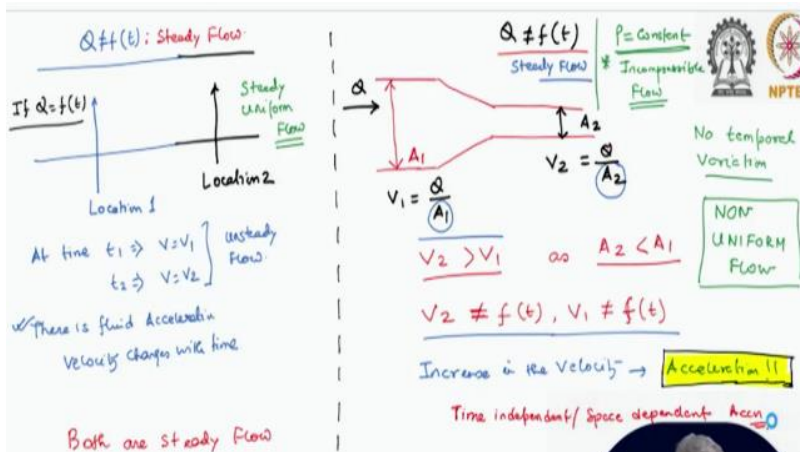 Q≠f(t): Steady Flow.
If Q=f(t)
Steady
Uniform
Flow
Location 1
Location 2
At time t₁ ⇒ V=V₁
t₂ ⇒ V=V₂
unsteady
Flow.
There is fluid Acceleration
Velocity changes with time
Both are Steady Flow
Q ≠ f(t)
Steady Flow
ρ = Constant
* Incompressible
Flow
NPTE
Q
A₁
A₂
V₁ = Q/A₁
V₂ = Q/A₂
No temporal
Variation
NON
UNIFORM
FLOW
V₂ > V₁ as A₂ < A₁
V₂ ≠ f(t), V₁ ≠ f(t)
Increase in the Velocity → Acceleration !!
Time independent/ Space dependent Accn